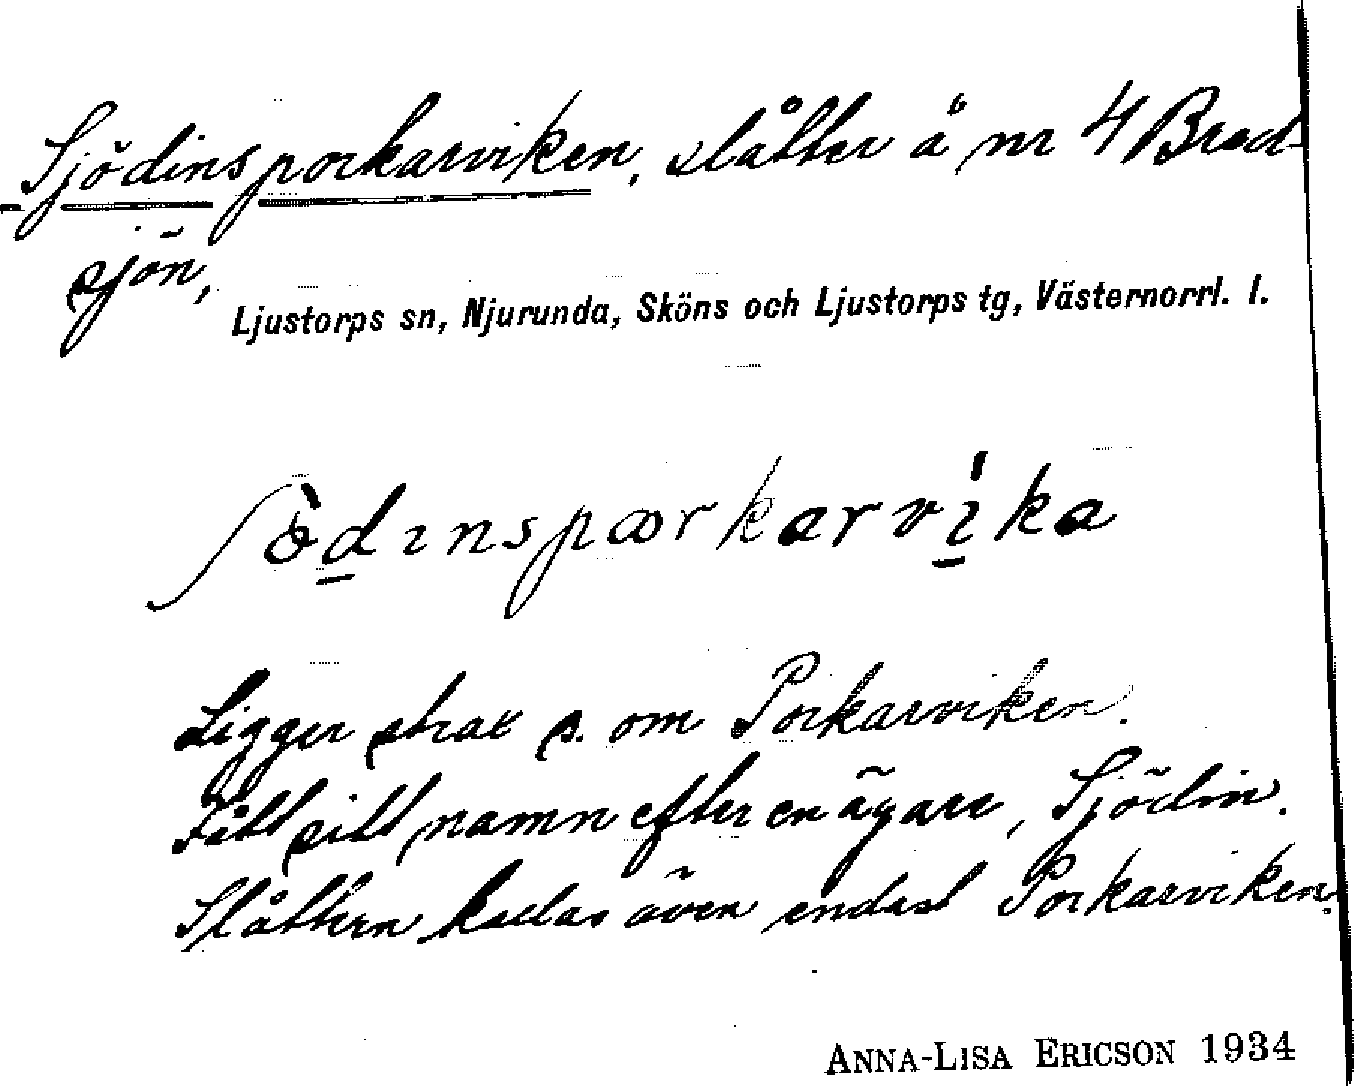 Sjödinsporkarviken, slåtter å nr 4 Bred-
sjön,
Ljustorps sn, Njurunda, Sköns och Ljustorps tg, Västernorrl. l.
ʃòdinspœrkarvíka
Ligger strax s. om Porkarviken.
Fått sitt namn efter en ägare, Sjödin.
Slåttern kallas även endast Porkarviken.
ANNA-LISA ERICSON 1934